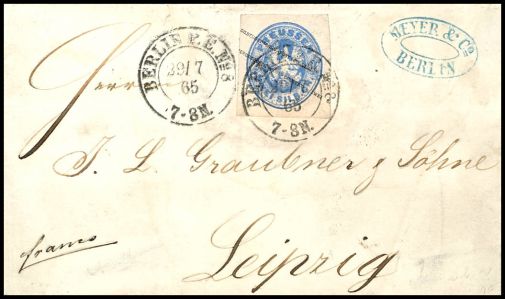 BERLIN P.E. No 8
29/7
65
7-8N.
PREUSSEN
BERLIN
65
7-8N.
MEYER & Co
BERLIN
Herrn
J. L. Graubner & Söhne
franco
Leipzig